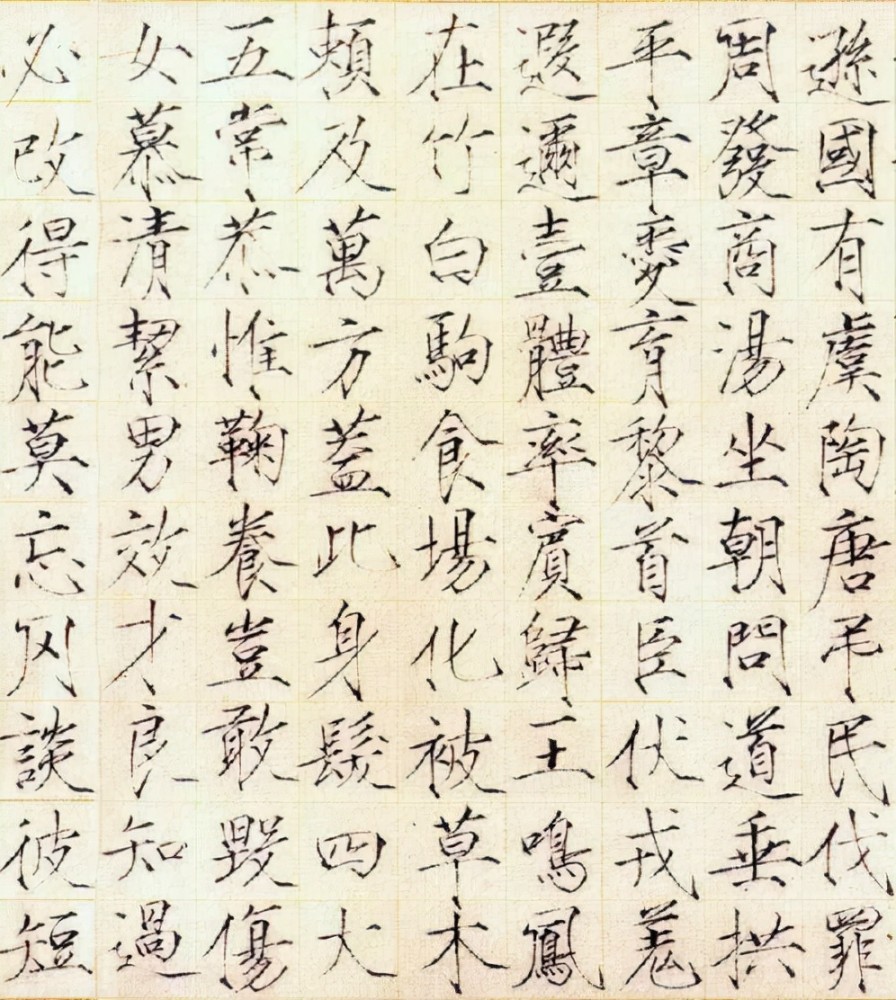 遜國有虞陶唐弔民伐罪
周發商湯坐朝問道垂拱
平章愛育黎首臣伏戎羌
遐邇壹體率賓歸王鳴鳳
在竹白駒食場化被草木
頼及萬方蓋此身髮四大
五常恭惟鞠養豈敢毀傷
女慕清絜男效才良知過
必改得能莫忘罔談彼短